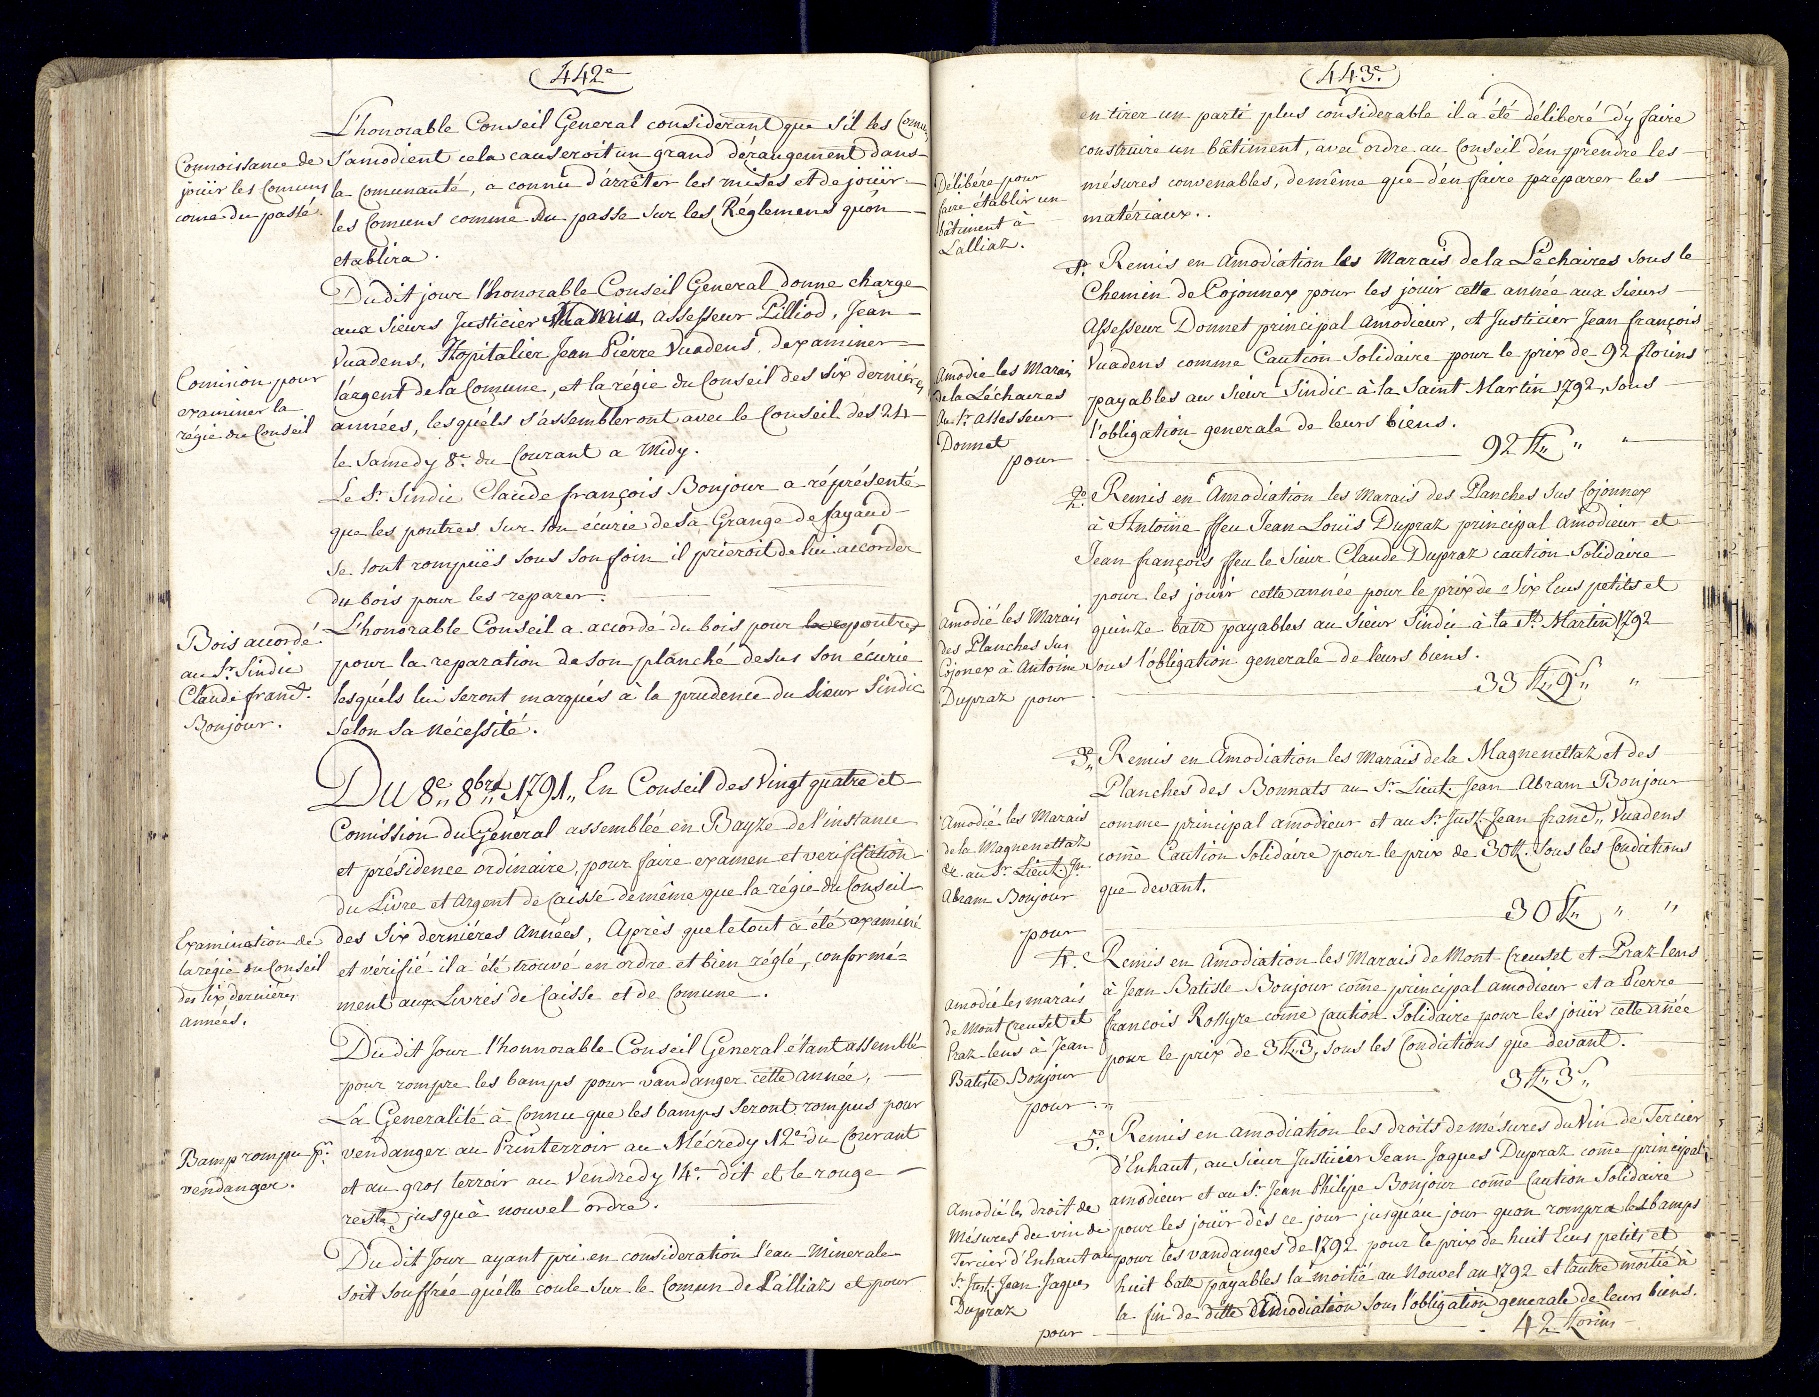 442e
L'honorable Conseil General considerant que s'il les Comu
Connoissance de
jouïr les Comuns
come du passé.
s'amodient cela causeroit un grand dérangement dans
la Comunauté, a connu d'arrêter les mises et de jouïr
les Comuns comme du passe sur les Réglemens quon
etablira.
Dudit jour l'honorable Conseil General donne charge
aux Sieurs Justicier Assesseur Pilliod, Jean
Vuadens, Hopitalier Jean Pierre Vuadens, d'examiner
Comision pour
examiner la
régie du Conseil
l'argent de la Comune, et la régie du Conseil des six derniéres
années, lesquéls s'assembleront avec le Conseil des 24
le Samedy 8e du Courant a Midy.
Le Sr. Sindic Claude françois Bonjour a réprésenté
que les poutres sur son écurie de sa Grange de fayaud
se sont rompuës sous son foin il prieroit de lui accorder
du bois pour les reparer.
Bois accordé
au Sr. Sindic
Claude franc̄s.
Bonjour.
L'honorable Conseil a accordé du bois pour les poutres
pour la reparation de son planché desus son écurie
lesquéls lui seront marqués à la prudence du Sieur Sindic
selon sa nécessité.
Du 8e,, 8bre,, 1791,, En Conseil des Vingt quatre et
Comission du Géneral assemblée en Bayze de l'instance
et présidence ordinaire, pour faire examen et verification
du Livre et Argent de Caisse de même que la régie du Conseil
Examination de
la régie du Conseil
des six derniéres
années.
des Six derniéres Années, Après que le tout à été examiné
et vérifié il a été trouvé en ordre et bien réglé, conformé=
ment aux Livres de Caisse et de Comune.
Dudit Jour l'honnorable Conseil General étant assemblé
pour rompre les bamps pour vandanger cette année,
La Generalité à Connu que les bamps seront rompus pour
Bamp rompu pr.
vendanger.
vendanger au Printerroir au Mécredy 12e du Courant
et au gros terroir au Vendredy 14e dit et le rouge
reste jusqu'à nouvel ordre.
Du dit Jour ayant pri en consideration l'eau Minerale
soit Souffrée qu'élle coule sur le Comun de Lalliaz et pour
443e.
en tirer un parti plus considerable il a été délibéré d'y faire
construire un bâtiment, avec ordre au Conseil d'en prendre les
Délibére pour
faire établir un
bâtiment à
Lalliaz.
mésures convenables, demême que d'en faire préparer les
matériaux..
1. Remis en Amodiation les Marais de la Léchaires sous le
Chemin de Cojonnex pour les jouir cette année aux Sieurs
Assesseur Donnet principal Amodieur, et Justicier Jean françois
Vuadens comme Caution Solidaire pour le prix de 92 florins
Amodié les Marais
de la Léchaires
au Sr. Assesseur
Donnet
pour
payables au Sieur Sindic à la Saint Martin 1792, sous
l'obligation generale de leurs biens.
92 ff,, " "
2o. Remis en Amodiation les Marais des Planches sus Cojonnex
à Antoine ffeu Jean Loüis Dupraz principal Amodieur et
Jean françois ffeu le Sieur Claude Dupraz caution Solidaire
pour les jouir cette année pour le prix de Six Ecus petits et
Amodié les Marais
des Planches sus
Cojonex à Antoine
Dupraz pour
quinze batz payables au Sieur Sindic à la St. Martin 1792
sous l'obligation generale de leurs biens.
33 ff,, 9 s,, "
3o,, Remis en Amodiation les Marais de la Magnenettaz et des
Planches des Bonnats au Sr. Lieut. Jean Abram Bonjour
Amodié les Marais
de la Magnenettaz
&. au Sr. Lieut. Jn
Abram Bonjour
pour
comme principal amodieur et au Sr. Just. Jean franc̄s,, Vuadens
com̄e Caution Solidaire pour le prix de 30 ff. sous les Conditions
que devant.
30 ff,, " "
4. Remis en Amodiation les Marais de Mont Creuset et Praz-lens
à Jean Batiste Bonjour com̄e principal amodieur et a Pierre
amodié les marais
de Mont Creuset et
Praz-lens à Jean
Batiste Bonjour
pour
francois Rossyre com̄e Caution Solidaire pour les jouïr cette année
pour le prix de 3 ff 3, sous les Conditions que devant.
3 ff,, 3 s,,
5o. Remis en amodiation les droits de mésures du Vin de Tercier
d'Enhaut, au Sieur Justicier Jean Jaques Dupraz com̄e principal
amodieur et au Sr. Jean Philipe Bonjour com̄e Caution Solidaire
Amodié les droit de
Mésures du vin de
Tercier d'Enhaut au
Sr. Just. Jean Jaques
Dupraz
pour
pour les jouïr dès ce jour jusqu'au jour quon rompra les bamps
pour les vandanges de 1792 pour le prix de huit Ecus petits et
huit batz payables la moitié au Nouvel an 1792 et l'autre moitié à
la fin de ditte Amodiation sous l'obligation generale de leurs biens.
42 florins